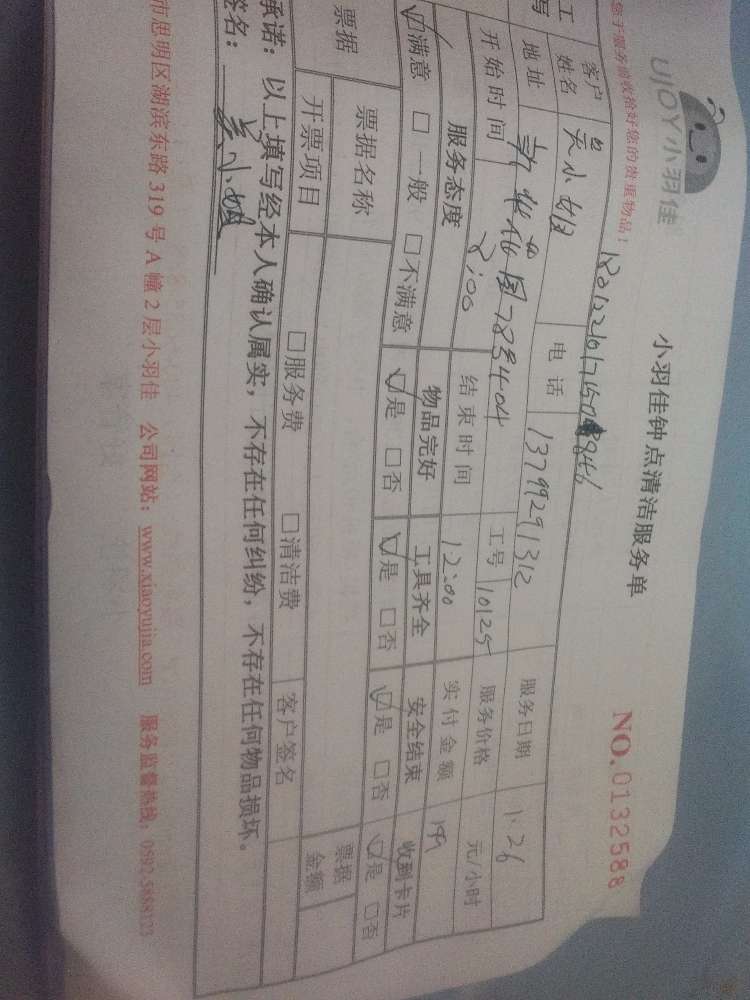 UJOY小羽佳
小羽佳钟点清洁服务单
NO.0132588
您于服务前收拾好您的贵重物品！
客户姓名 吴小姐 电话 13799291312 服务日期 1.26
地址 工号 10125 服务价格 元/小时
开始时间 8:00 结束时间 12:00 实付金额 199
服务态度 物品完好 工具齐全 安全结束 收到卡片
☑满意 □一般 □不满意 ☑是 □否 ☑是 □否 ☑是 □否 ☑是 □否
票据 票据名称 票据金额
开票项目 □服务费 □清洁费 客户签名
承诺：以上填写经本人确认属实，不存在任何纠纷，不存在任何物品损坏。
签名： 吴小姐
市思明区湖滨东路 319 号 A 幢 2 层小羽佳 公司网站：www.xiaoyujia.com 服务监督热线：0592-5888123